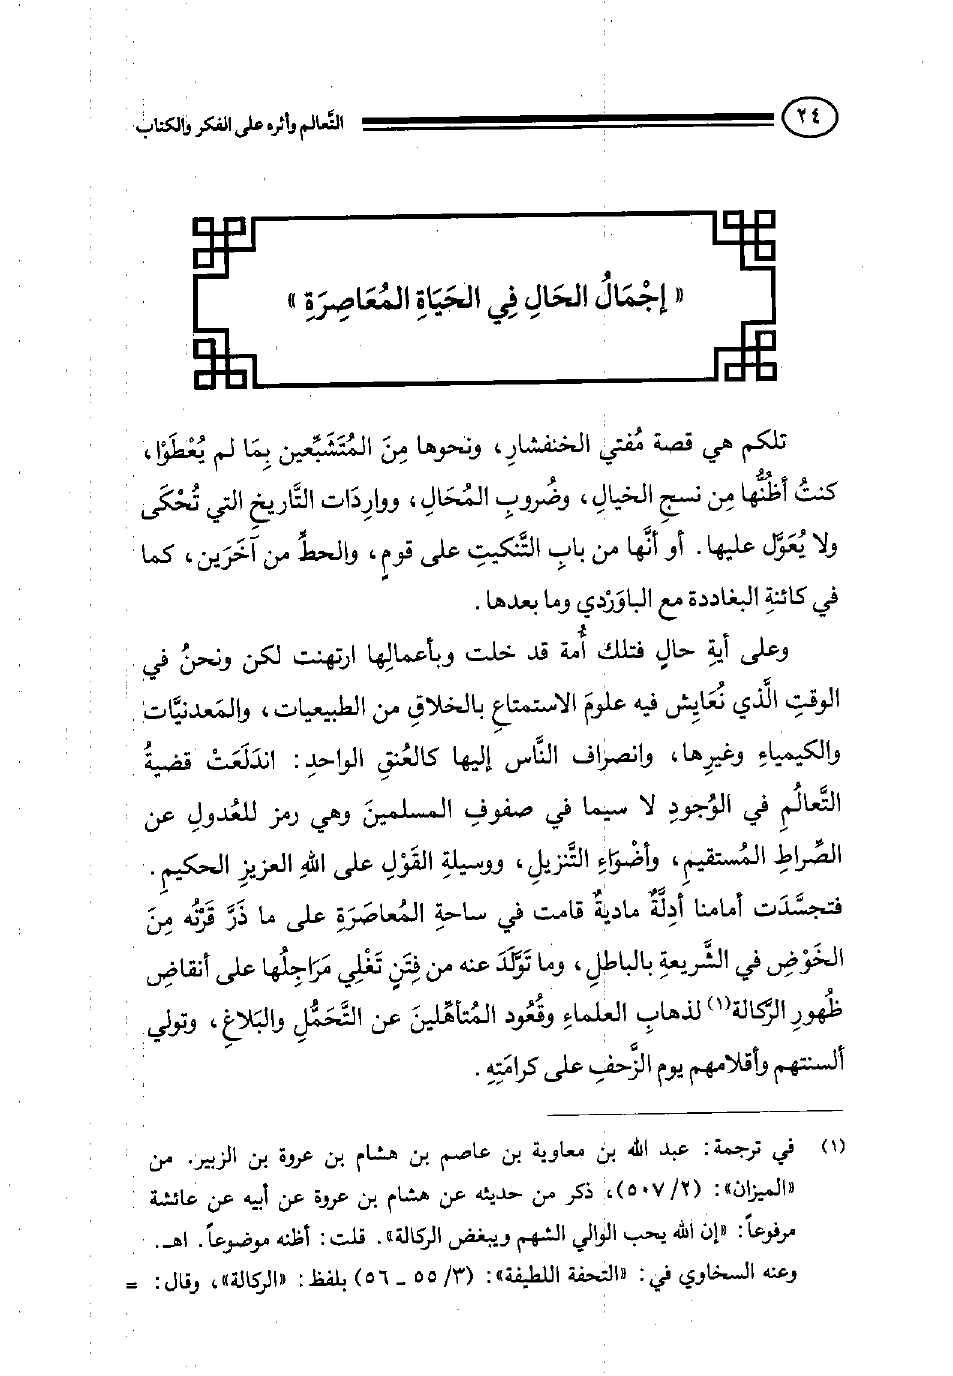 ٢٤
التَّعالم وأثره على الفكر والكتاب
« إجْمَالُ الحَالِ فِي الحَيَاةِ المُعَاصِرَةِ »
تلكم هي قصة مُفتي الخنفشارِ، ونحوها مِنَ المُتَشَبِّعين بِمَا لم يُعْطَوْا،
كنتُ أظُنُّها مِن نسجِ الخيال، وضُروبِ المُحَال، ووارِدَات التَّاريخِ التي تُحْكَى
ولا يُعَوَّل عليها. أو أنَّها من بابِ التَّنكيتِ على قومٍ، والحطِّ من آخَرَين، كما
في كائنةِ البغاددة مع الباوَرْدي وما بعدها.
وعلى أيةِ حالٍ فتلك أُمة قد خلت وبأعمالِها ارتهنت لكن ونحنُ في
الوقتِ الَّذي نُعَايِش فيه علومَ الاستمتاعِ بالخلاقِ من الطبيعيات، والمَعدنيَّات
والكيمياءِ وغيرِها، وانصراف النَّاس إليها كالعُنقِ الواحدِ: اندَلَعَتْ قضيةُ
التَّعالُمِ في الوُجودِ لا سيما في صفوفِ المسلمينَ وهي رمز للعُدولِ عن
الصِّراطِ المُستقيمِ، وأضْوَاءِ التَّنزيلِ، ووسيلةِ القَوْلِ على اللهِ العزيزِ الحكيمِ.
فتجسَّدَت أمامنا أدِلَّةٌ ماديةٌ قامت في ساحةِ المُعاصَرَةِ على ما ذَرَّ قَرْنُه مِنَ
الخَوْضِ في الشَّريعةِ بالباطلِ، وما تَوَلَّدَ عنه من فِتَنٍ تَغْلِي مَرَاجِلُها على أنقاضِ
ظُهورِ الرَّكالة(١) لذهابِ العلماءِ وقُعُود المُتأهِّلينَ عن التَّحَمُّلِ والبَلاغِ، وتولي
ألسنتهم وأقلامهم يوم الزَّحفِ على كرامَتِهِ.
(١) في ترجمة: عبد الله بن معاوية بن عاصم بن هشام بن عروة بن الزبير. من
«الميزان»: (٢/ ٥٠٧)، ذكر من حديثه عن هشام بن عروة عن أبيه عن عائشة
مرفوعاً: «إن الله يحب الوالي الشهم ويبغض الركالة». قلت: أظنه موضوعاً. اهـ.
وعنه السخاوي في: «التحفة اللطيفة»: (٣/ ٥٥ ـ ٥٦) بلفظ: «الركالة»، وقال: =